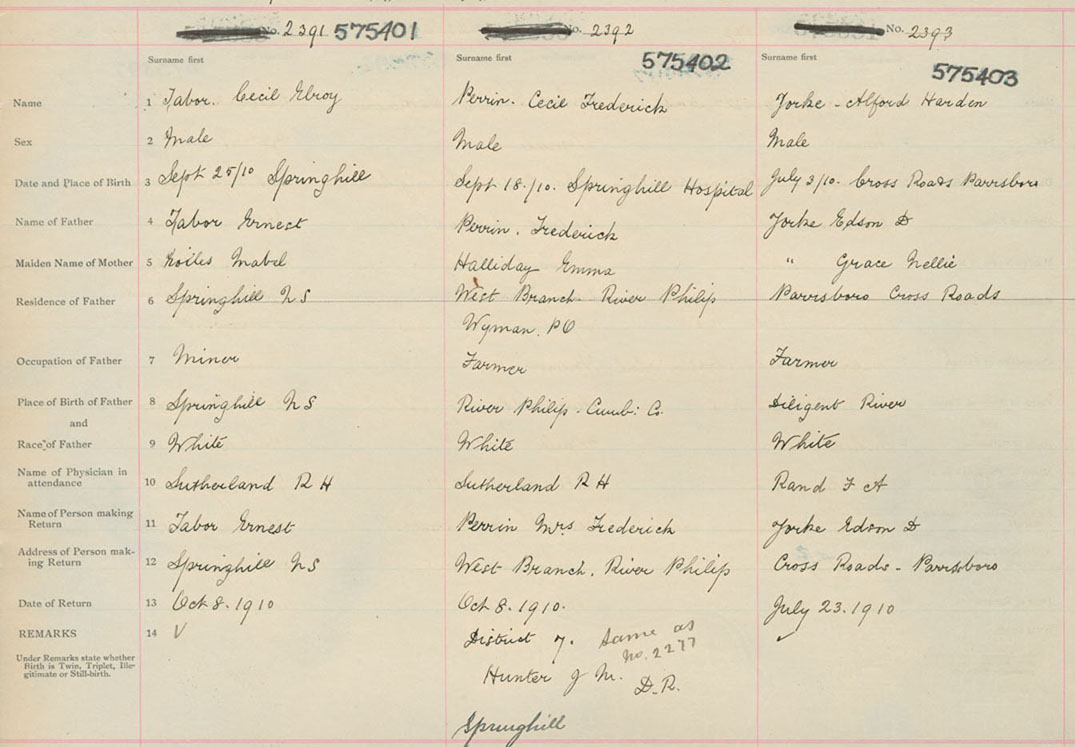 No. 2391 575401
Surname first
Name 1 Tabor. Cecil Elroy
Sex 2 Male
Date and Place of Birth 3 Sept 25/10 Springhill
Name of Father 4 Tabor Ernest
Maiden Name of Mother 5 Mabel
Residence of Father 6 Springhill NS
Occupation of Father 7 Miner
Place of Birth of Father 8 Springhill NS
and
Race of Father 9 White
Name of Physician in
attendance 10 Sutherland R H
Name of Person making
Return 11 Tabor Ernest
Address of Person mak-
ing Return 12 Springhill NS
Date of Return 13 Oct 8. 1910
REMARKS 14 V
Under Remarks state whether
Birth is Twin, Triplet, Ille-
gitimate or Still-birth.
No. 2392
575402
Surname first
Perrin. Cecil Frederick
Male
Sept 18./10. Springhill Hospital
Perrin. Frederick
Halliday Emma
West Branch. River Philip
Wyman. PO
Farmer
River Philip. Cumb: Co.
White
Sutherland R H
Perrin Mrs Frederick
West Branch. River Philip
Oct 8. 1910.
District 7. Same as
No. 2277
Hunter J M.
D.R.
Springhill
No. 2393
575403
Surname first
Yorke - Alford Harden
Male
July 3/10. Cross Roads Parrsboro
Yorke Edson D
" Grace Nellie
Parrsboro Cross Roads
Farmer
Diligent River
White
Rand F A
Yorke Edson D
Cross Roads - Parrsboro
July 23. 1910